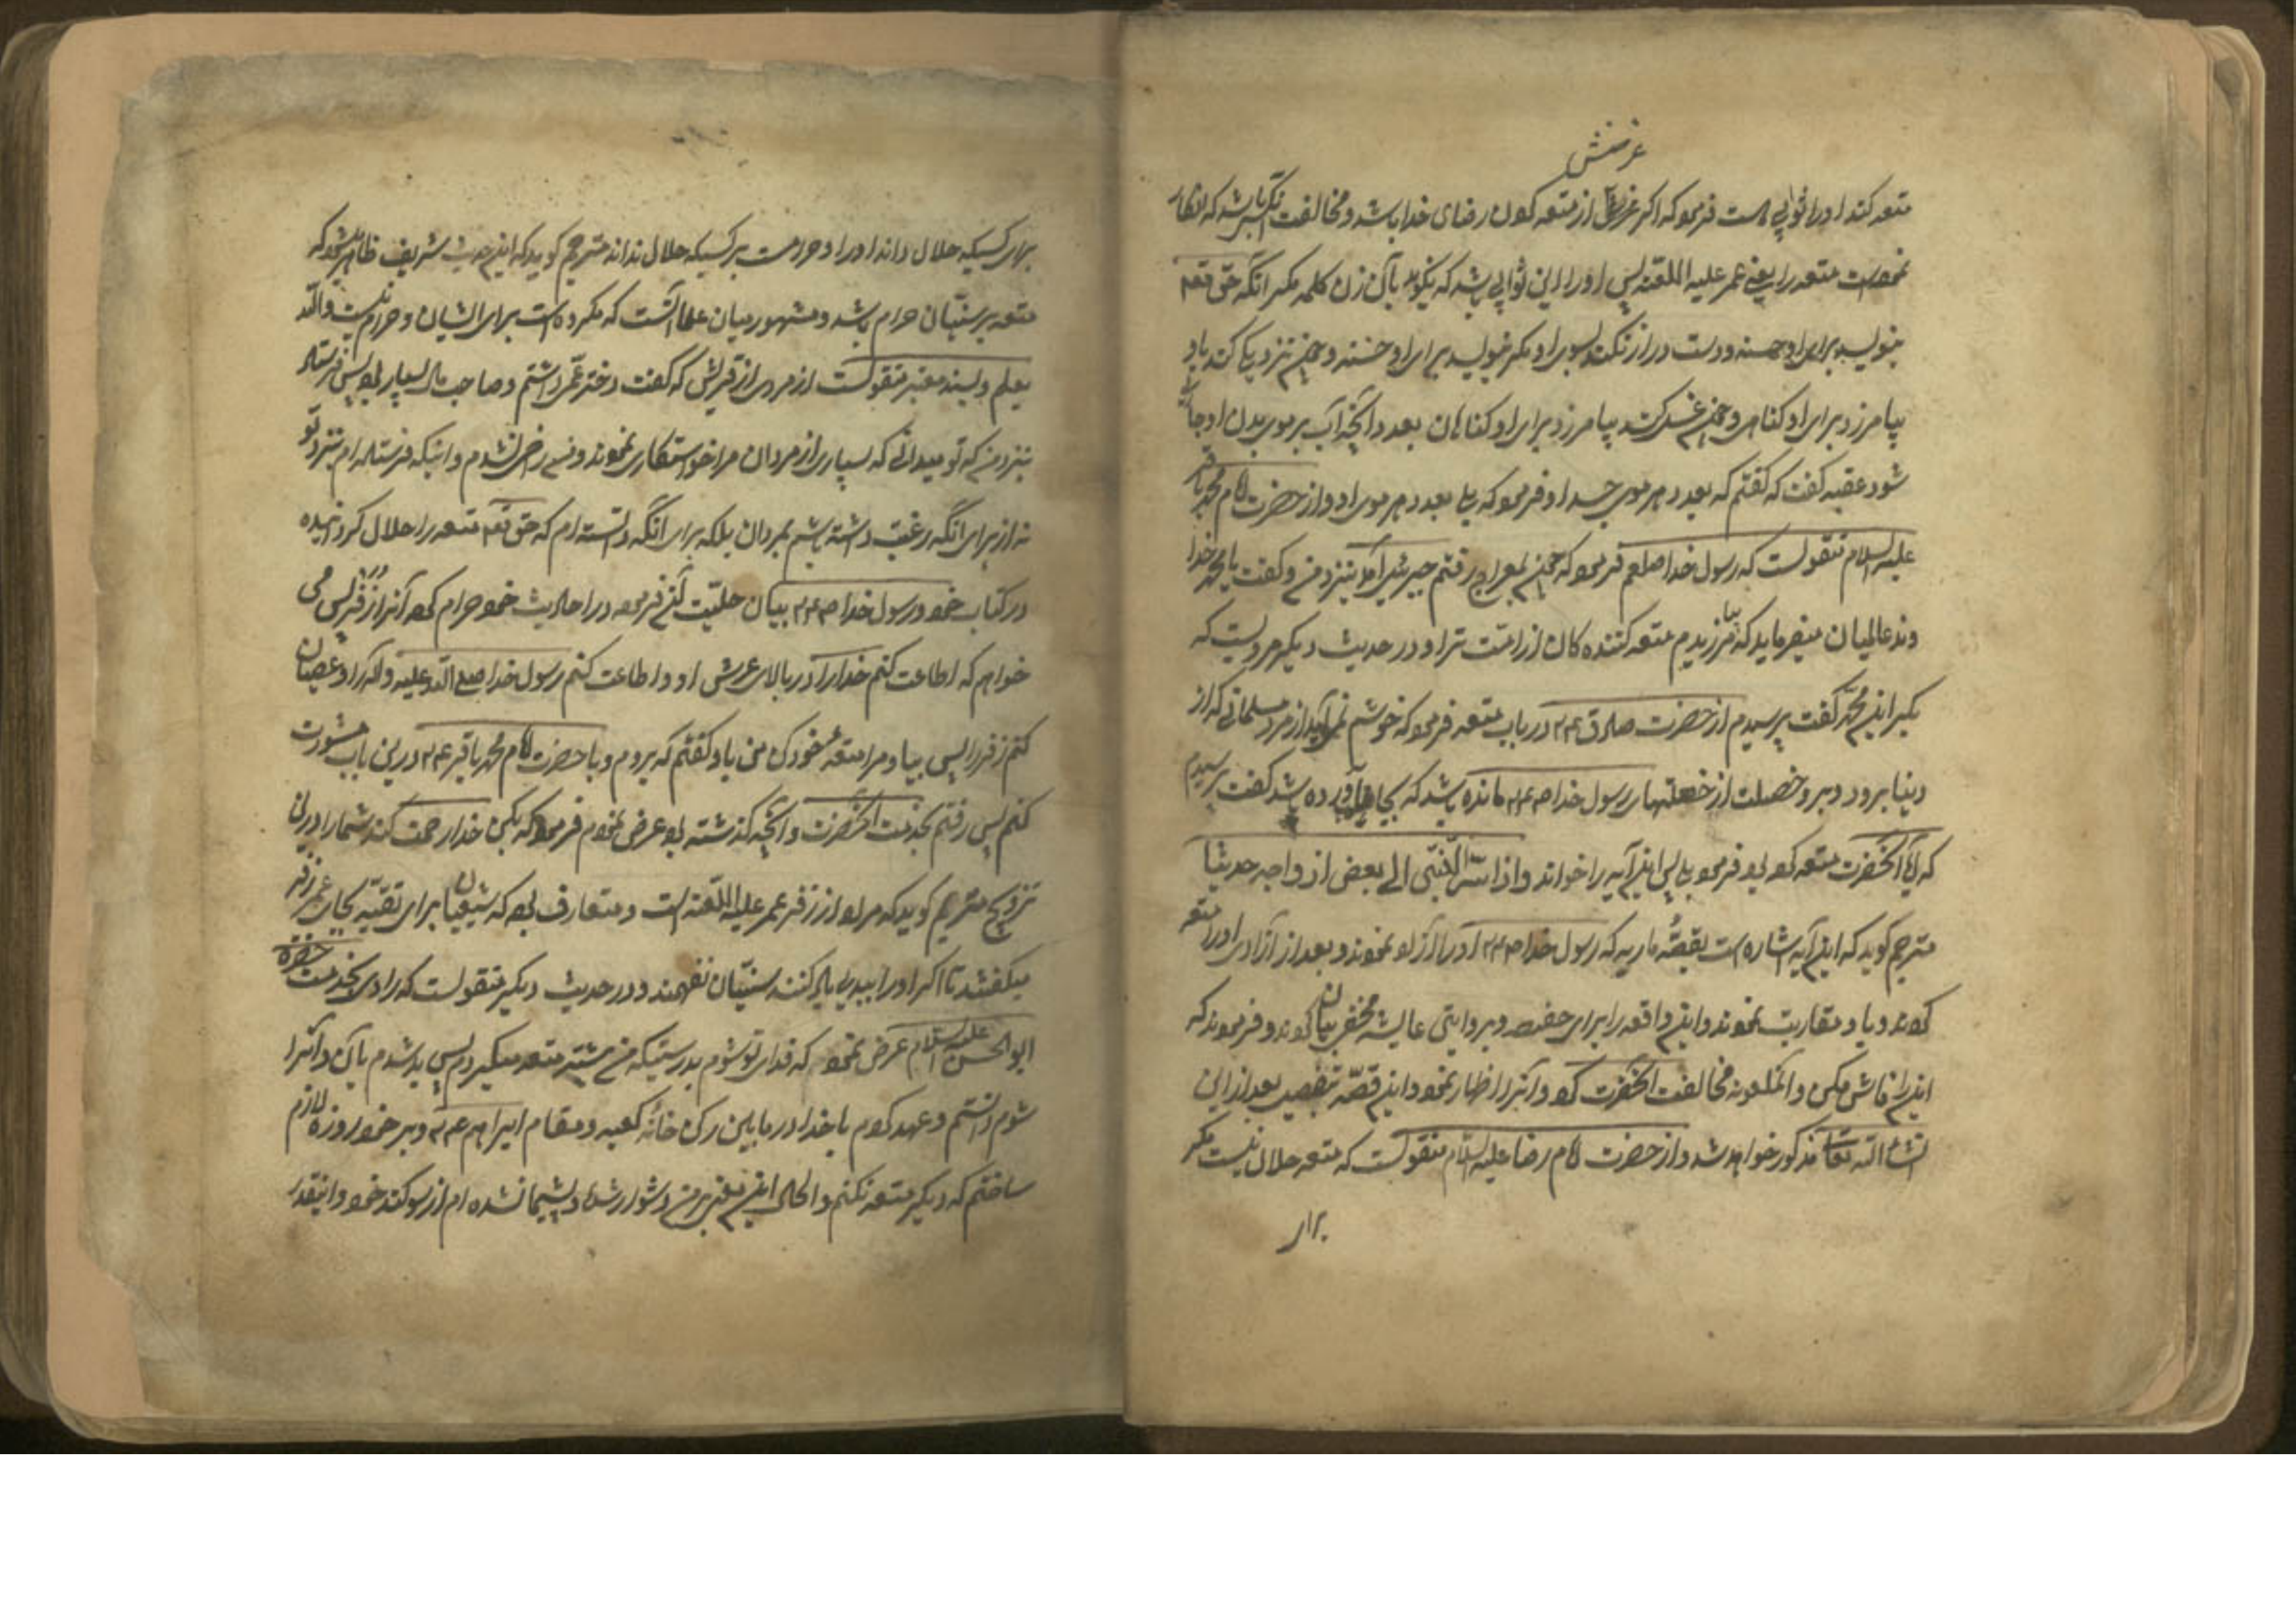 غرضش
متعه کند او را ثوابی هست فرمود که اگر غرضش از متعه کردن رضای خدا باشد و مخالفت باشد که انکار
نموده است متعه را یعنی عمر علیه اللعنه پس او را این ثوابی باشد که نگوید بآن زن کلمه مگر آنکه حق تعم
بنویسد برای او حسنه و دست دراز نکند بسوی او مگر بنویسد برای او حسنه و چون نزدیکی کند باو
بیامرزد برای او گناهی و چون غسل کند بیامرزد برای او گناهان بعدد آنچه آب بر موی بدن او جاری
شود عقبه گفت که گفتم که بعدد هر موی جسد او فرمود که بلی بعدد هر موی او و از حضرت امام محمد باقر
علیه السلام منقولست که رسول خدا صلعم فرمود که چون بمعراج رفتم جبرئیل آمد بنزد من و گفت یا محمد خدا
وند عالمیان میفرماید که آمرزیدم متعه کننده کان از امت ترا و در حدیث دیگر مرویست که
بکر ابن محمد گفت پرسیدم از حضرت صادق ع م در باب متعه فرمود که خوشم نمی‌آید از مرد مسلمانی که از
دنیا برود و برو خصلت از خصلتهای رسول خدا ص ع م مانده باشد که بجا نیاورده باشد گفت پرسیدم
که آیا آنحضرت متعه کرده بود فرمود بلی پس این آیه را خواند و اذ اسرّ النّبی الی بعض ازواجه حدیثا
مترجم گوید که این آیه اشاره است بقصّه ماریه که رسول خدا ص ع م او را آزاد نمودند و بعد از آزادی او را متعه
کردند و باو مقاربت نمودند و این واقعه را برای حفصه و بروایتی عایشه مخفی بیان کردند و فرمودند که
این را فاش مکن و آنملعونه مخالفت آنحضرت کرد و آنرا اظهار نمود و این قصّه بتفصیل بعد از این
انشاء الله تعالی مذکور خواهد شد و از حضرت امام رضا علیه السلام منقولست که متعه حلال نیست مگر
برای
برای کسیکه حلال داند او را و حرامست بر کسیکه حلال نداند مترجم گوید که این حدیث شریف ظاهر میشود که
متعه بر سنّیان حرام باشد و مشهور میان علما آنست که مکروه است برای ایشان و حرام نیست والله
یعلم و بسند معتبر منقولست از مردی از قریش که گفت دختر عمّی داشتم و صاحب مال بسیار بود پس فرستاد
بنزد من که تو میدانی که بسیاری از مردان مرا خواستکاری نمودند و من راضی نشدم و اینکه فرستاده ام بنزد تو
نه از برای آنکه رغبت داشته باشم بمردان بلکه برای آنکه دانسته ام که حق تعم متعه را حلال کردانیده
در کتاب خود و رسول خدا ص ع م بیان حلیّت آن فرموده در احادیث خود حرام کرد آنرا زفر پس می
خواهم که اطاعت کنم خدا را در بالای عرش او و اطاعت کنم رسول خدا صلی الله علیه و آله را و عصیان
کنم زفر را پس بیا و مرا متعه خود کن من باو گفتم که بروم و با حضرت امام محمد باقر ع م درین باب مشورت
کنم پس رفتم بخدمت آنحضرت و آنچه گذشته بود عرض نمودم فرمود که بکن خدا رحمت کند شما را درین
تزویج مترجم گوید که مراد از زفر عمر علیه اللّعنه است و متعارف بود که شیعیان برای تقیّه بجای عمر زفر
میگفتند تا اگر او را ببدی یاد کنند سنّیان نفهمند و در حدیث دیگر منقولست که راوی بخدمت حضرت
ابوالحسن علیه السلام عرض نمود که فدای تو شوم بدرستیکه من پیشتر متعه میکردم پس بد شدم بآن و آنرا
شوم دانستم و عهد کردم با خدا در مابین رکن خانه کعبه و مقام ابراهیم ع م و بر خود روزه لازم
ساختم که دیگر متعه نکنم و الحال این معنی بر من دشوار شده و پشیمان شده ام از سوگند خود و اینقدر